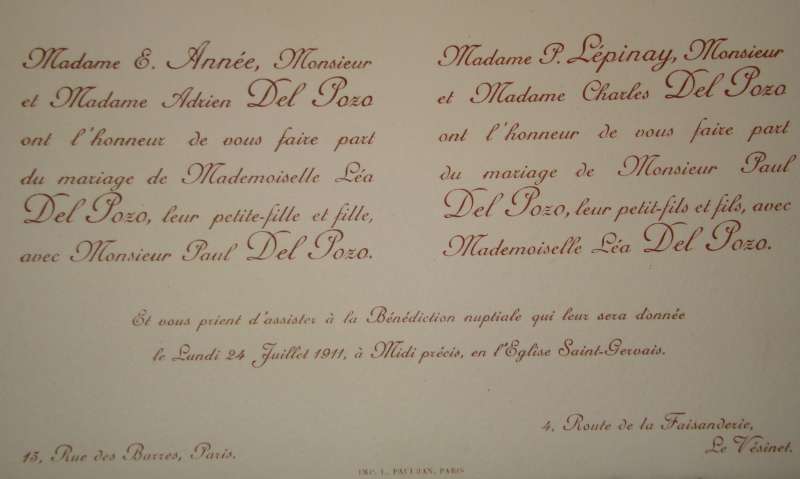 Madame E. Année, Monsieur
et Madame Adrien Del Pozo
ont l'honneur de vous faire part
du mariage de Mademoiselle Léa
Del Pozo, leur petite-fille et fille,
avec Monsieur Paul Del Pozo.
Madame P. Lépinay, Monsieur
et Madame Charles Del Pozo
ont l'honneur de vous faire part
du mariage de Monsieur Paul
Del Pozo, leur petit-fils et fils, avec
Mademoiselle Léa Del Pozo.
Et vous prient d'assister à la Bénédiction nuptiale qui leur sera donnée
le Lundi 24 Juillet 1911, à Midi précis, en l'Eglise Saint-Gervais.
Rue des Barres, Paris.
4, Route de la Faisanderie,
Le Vésinet.
IMP. L. PARIS